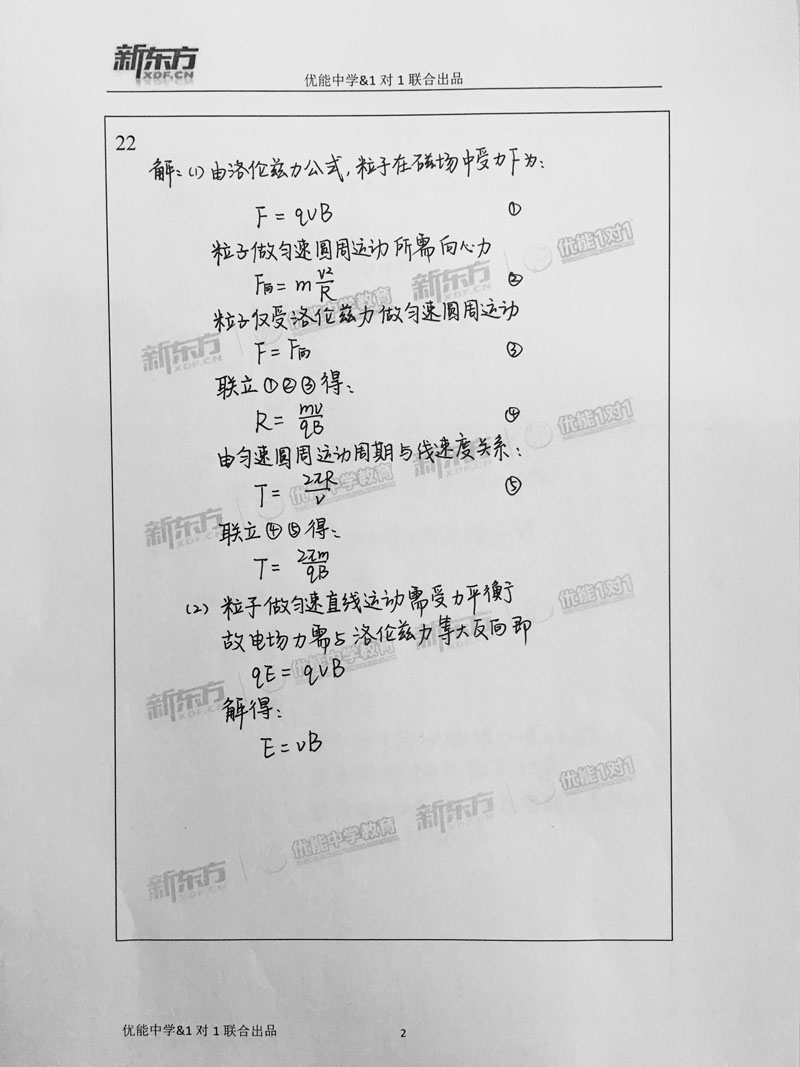 新东方
XDF.CN
优能中学&1 对 1 联合出品
22
解:(1)由洛伦兹力公式,粒子在磁场中受力F为:
F = qvB ①
粒子做匀速圆周运动所需向心力
F向 = m v²/R ②
粒子仅受洛伦兹力做匀速圆周运动
F = F向 ③
联立①②③得:
R = mv/qB ④
由匀速圆周运动周期与线速度关系:
T = 2πR/v ⑤
联立④⑤得:
T = 2πm/qB
(2) 粒子做匀速直线运动需受力平衡
故电场力需与洛伦兹力等大反向即
qE = qvB
解得:
E = vB
新东方 XDF.CN 优能中学教育 新东方 优能1对1
新东方 XDF.CN 优能中学教育 新东方 优能1对1
新东方 XDF.CN 优能中学教育 新东方 优能1对1
新东方 XDF.CN 优能中学教育 新东方 优能1对1
优能中学&1 对 1 联合出品
2